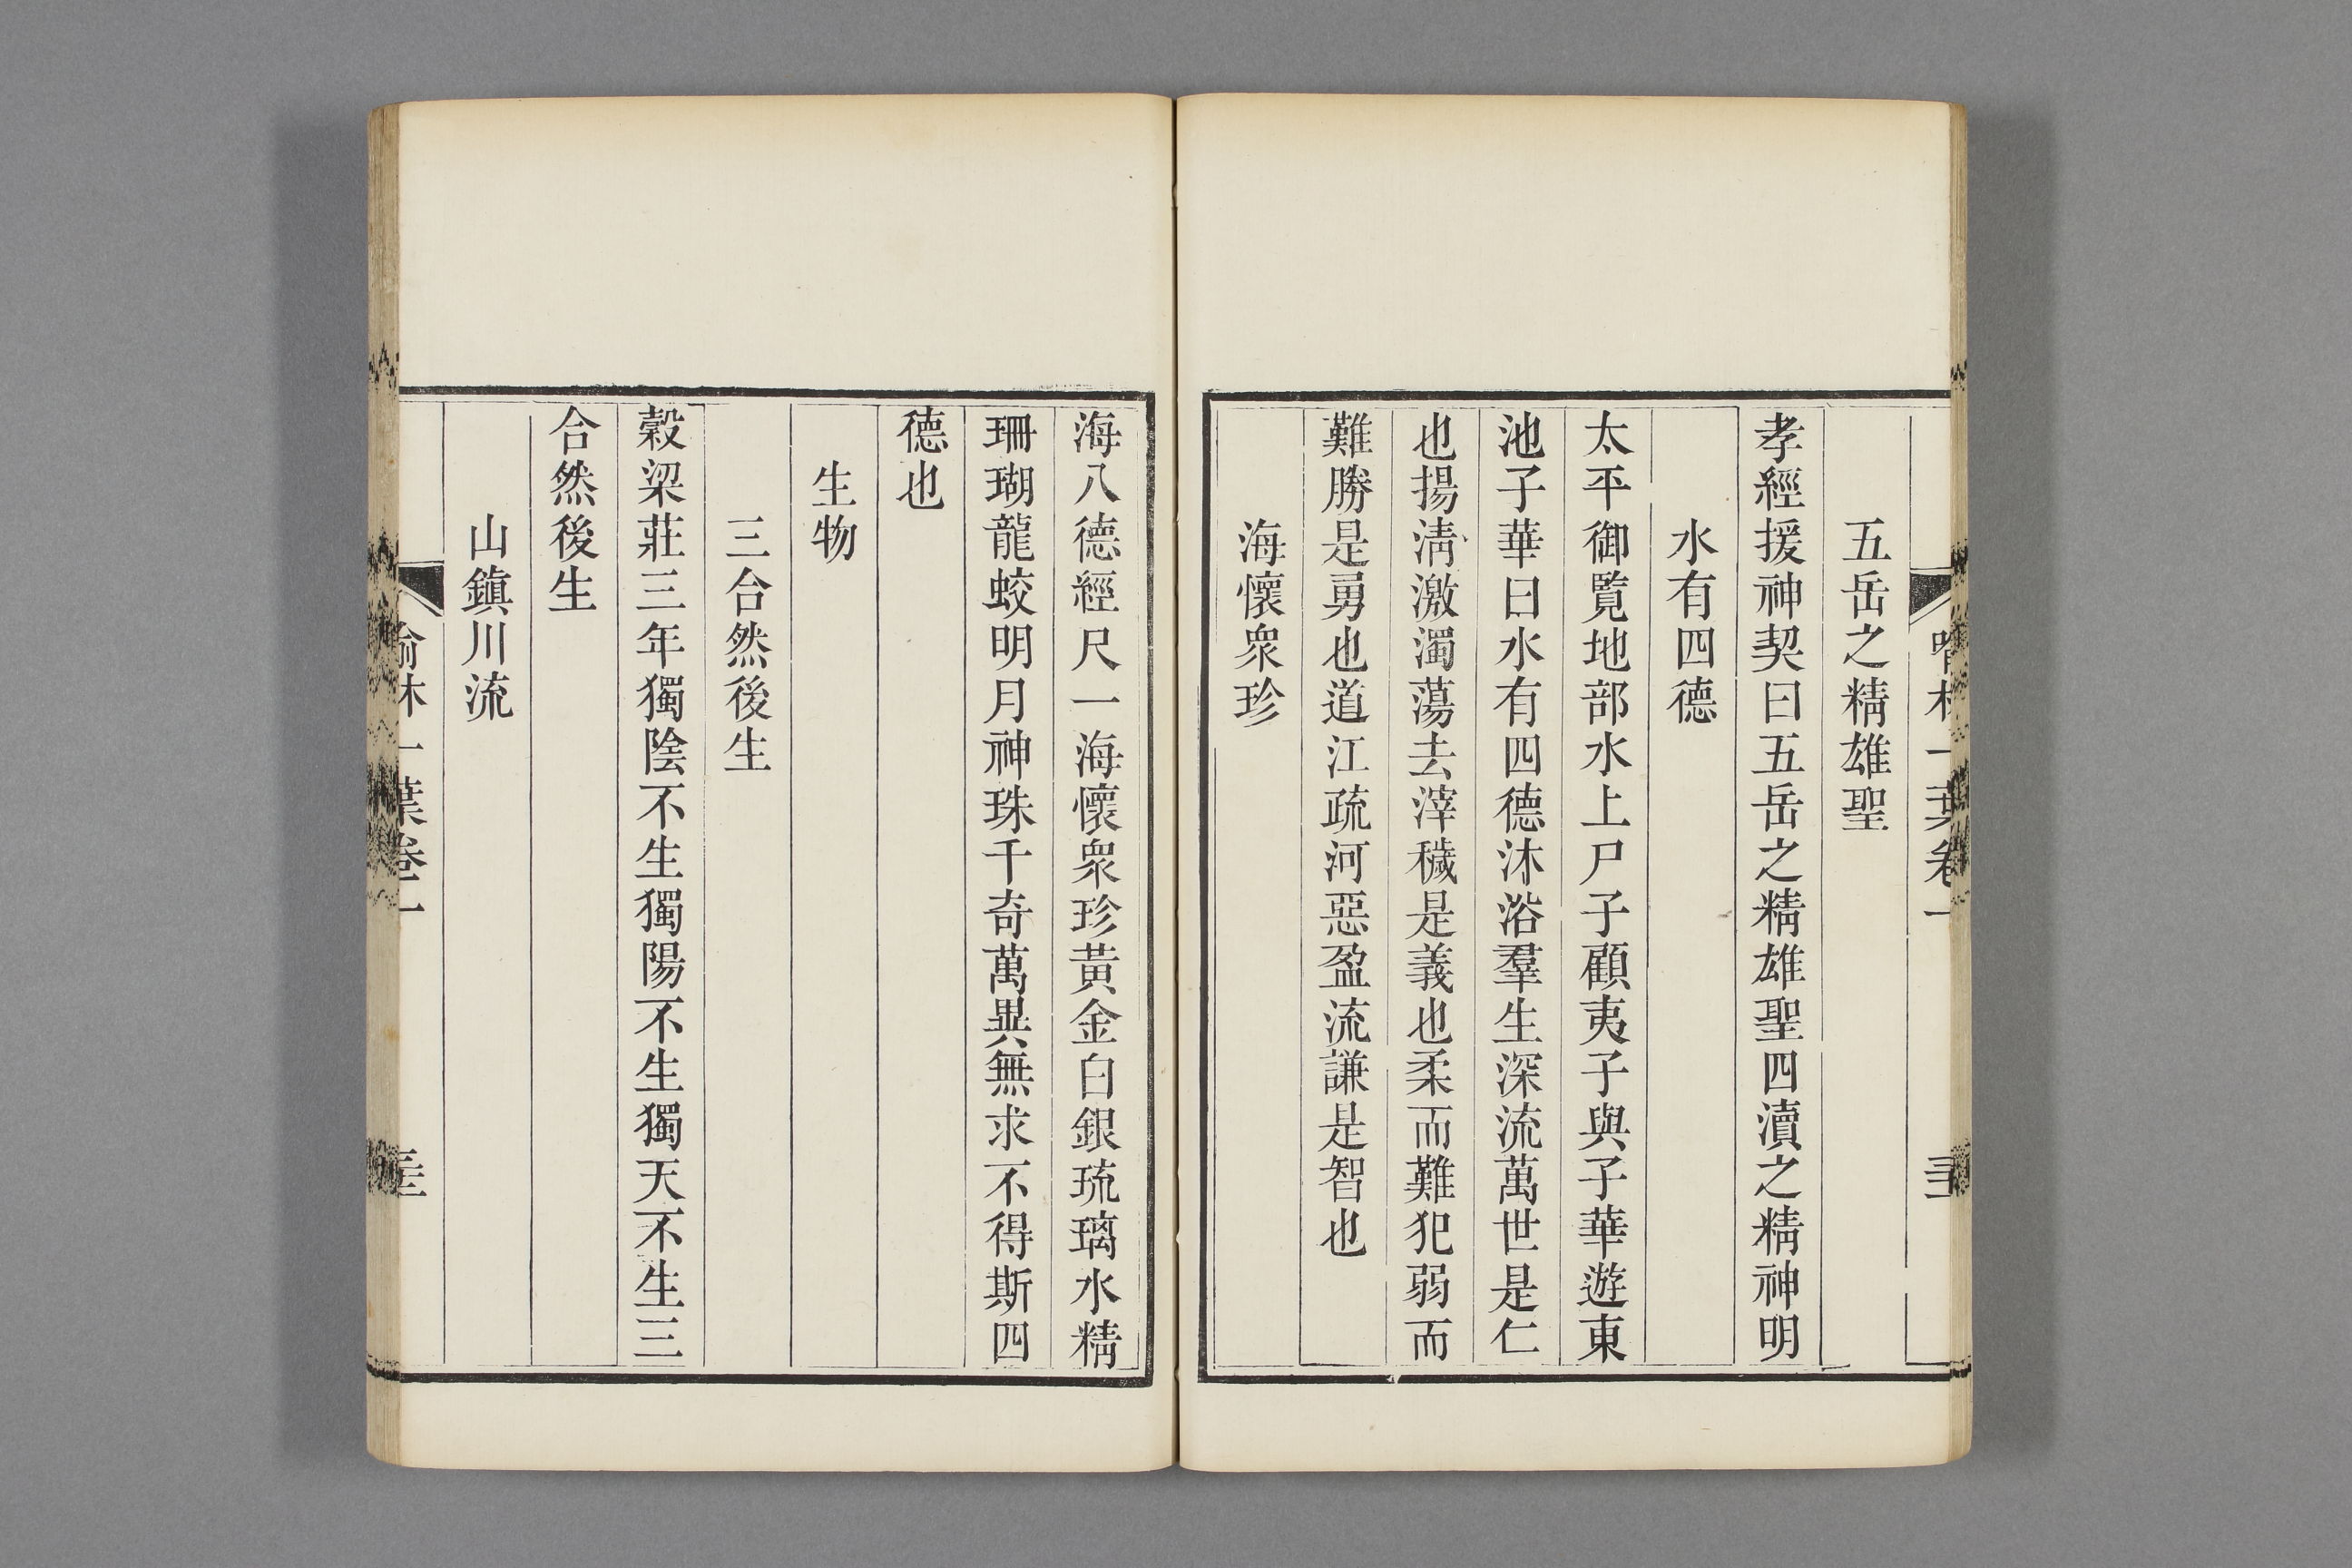 五岳之精雄聖
孝經援神契曰五岳之精雄聖四瀆之精神明
水有四德
太平御覽地部水上尸子顧夷子與子華遊東
池子華曰水有四德沐浴羣生深流萬世是仁
也揚淸激濁蕩去滓穢是義也柔而難犯弱而
難勝是勇也道江疏河惡盈流謙是智也
海懷衆珍
海八德經尺一海懷衆珍黃金白銀琉璃水精
珊瑚龍蛟明月神珠千奇萬異無求不得斯四
德也
生物
三合然後生
穀梁莊三年獨陰不生獨陽不生獨天不生三
合然後生
山鎮川流